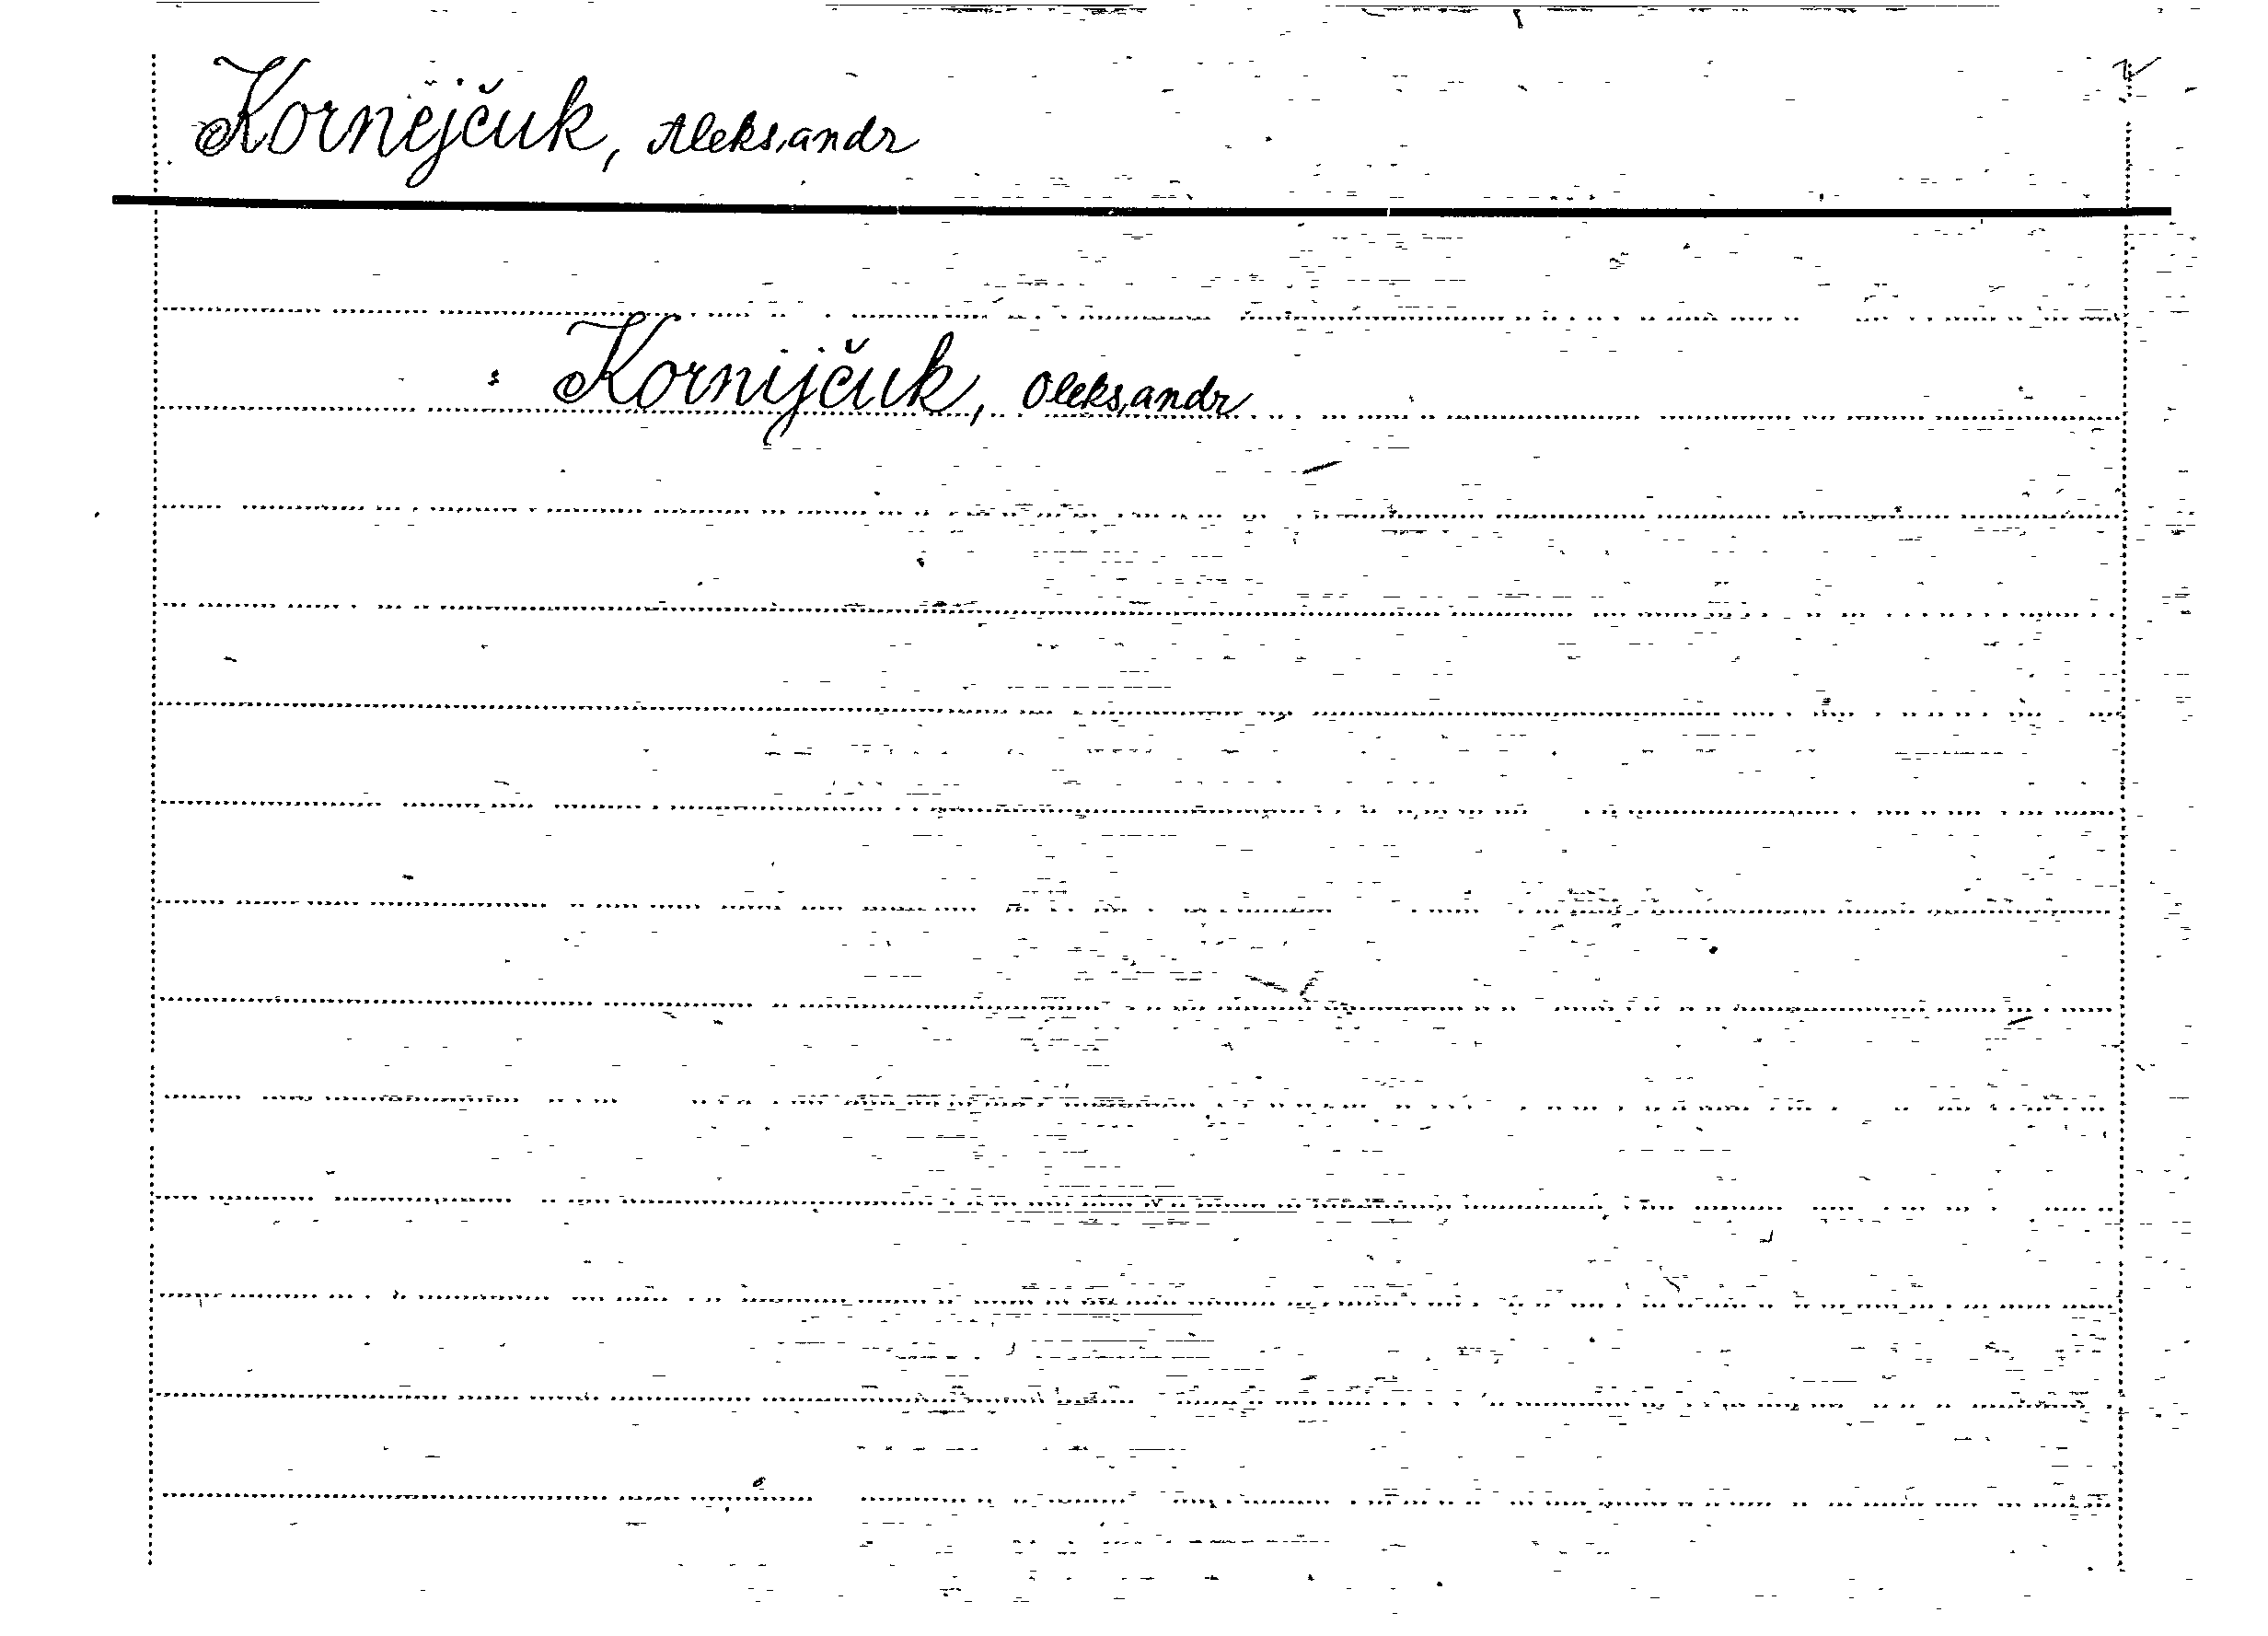 Kornejčuk, Aleksandr
s Kornijčuk, Oleksandr